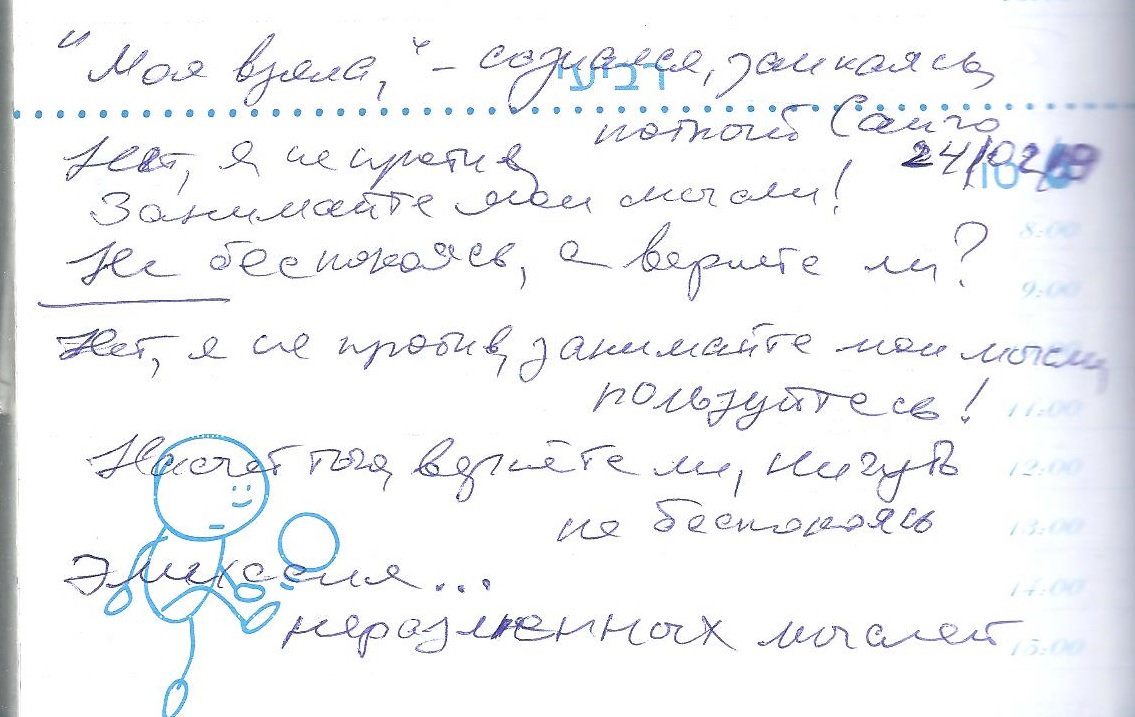 "Моя взяла," - сознался, заикаясь,
רביעי
потный Санчо
24/02/19
Нет, я не против,
Занимайте мои мысли!
10
8:00
Не беспокоясь, а вернете ли?
9:00
Нет, я не против, занимайте мои мысли,
пользуйтесь!
11:00
Насчет того, вернёте ли, ничуть
12:00
не беспокоясь
13:00
Эмиссия...
14:00
неразменных мыслей
15:00